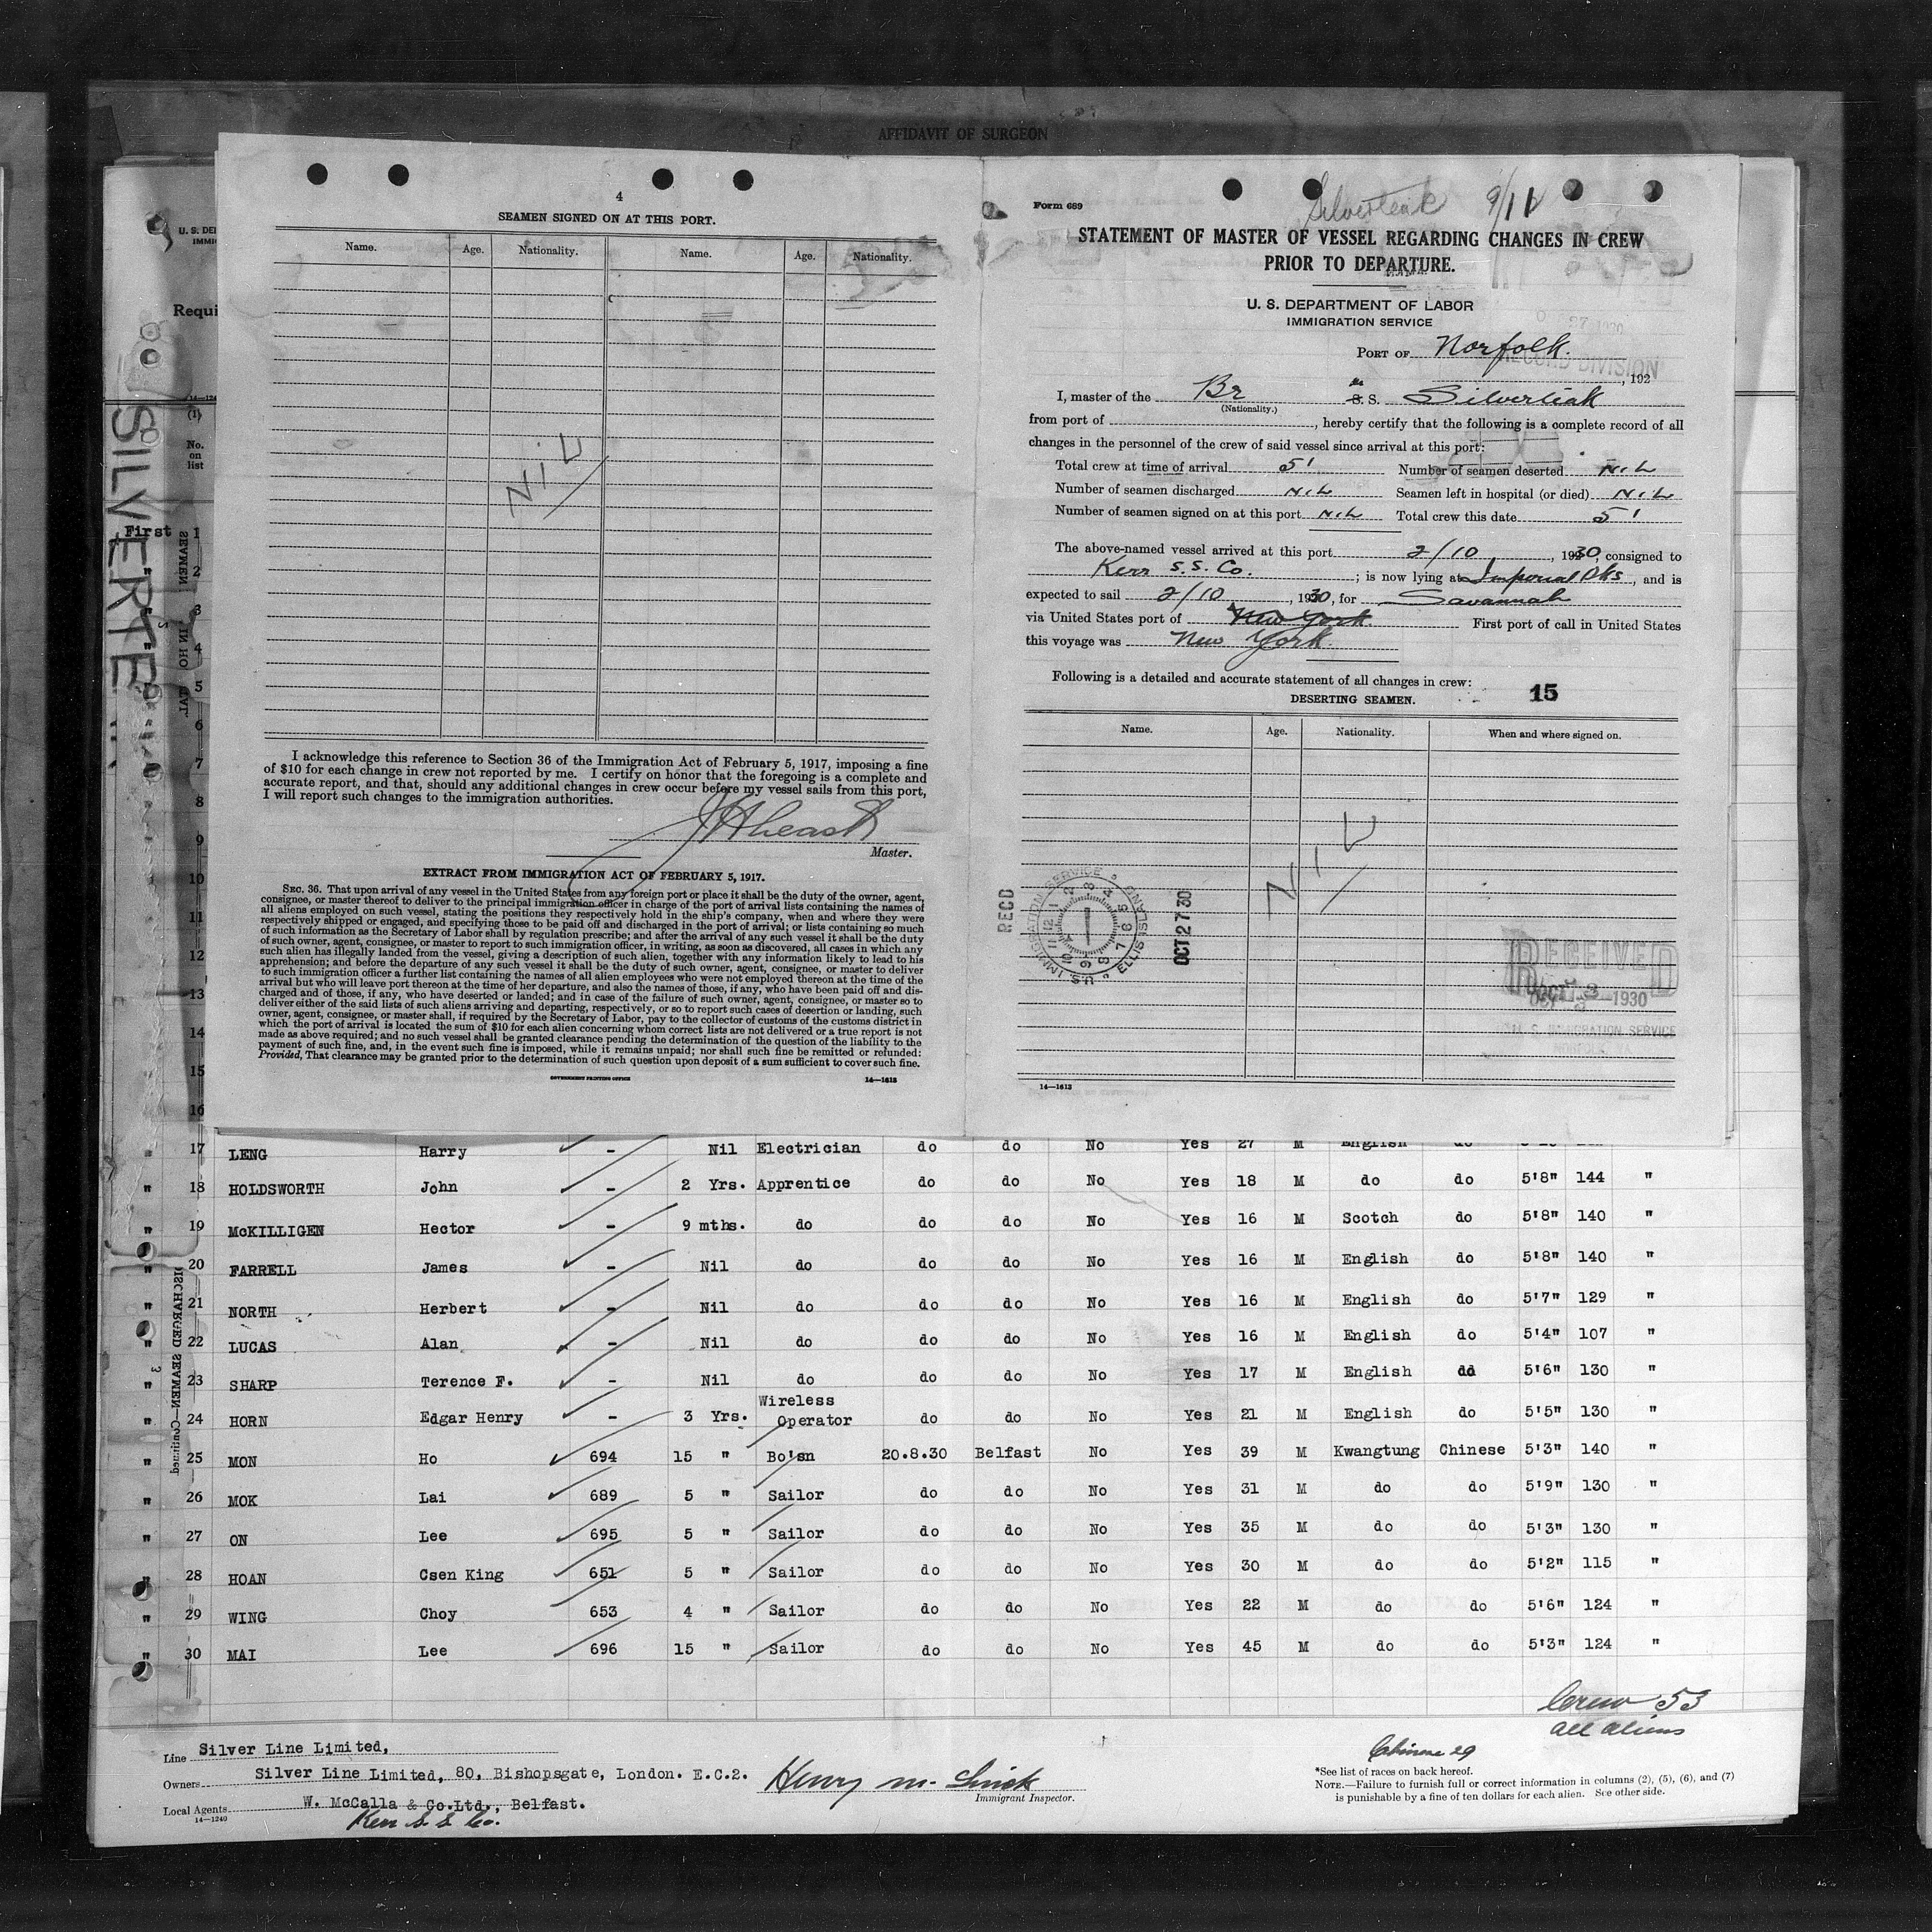 AFFIDAVIT OF SURGEON
4
SEAMEN SIGNED ON AT THIS PORT.
Name. Age. Nationality. Name. Age. Nationality.
NIL
I acknowledge this reference to Section 36 of the Immigration Act of February 5, 1917, imposing a fine
of $10 for each change in crew not reported by me. I certify on honor that the foregoing is a complete and
accurate report, and that, should any additional changes in crew occur before my vessel sails from this port,
I will report such changes to the immigration authorities.
Master.
EXTRACT FROM IMMIGRATION ACT OF FEBRUARY 5, 1917.
SEC. 36. That upon arrival of any vessel in the United States from any foreign port or place it shall be the duty of the owner, agent,
consignee, or master thereof to deliver to the principal immigration officer in charge of the port of arrival lists containing the names of
all aliens employed on such vessel, stating the positions they respectively hold in the ship's company, when and where they were
respectively shipped or engaged, and specifying those to be paid off and discharged in the port of arrival; or lists containing so much
of such information as the Secretary of Labor shall by regulation prescribe; and after the arrival of any such vessel it shall be the duty
of such owner, agent, consignee, or master to report to such immigration officer, in writing, as soon as discovered, all cases in which any
such alien has illegally landed from the vessel, giving a description of such alien, together with any information likely to lead to his
apprehension; and before the departure of any such vessel it shall be the duty of such owner, agent, consignee, or master to deliver
to such immigration officer a further list containing the names of all alien employees who were not employed thereon at the time of the
arrival but who will leave port thereon at the time of her departure, and also the names of those, if any, who have been paid off and dis-
charged and of those, if any, who have deserted or landed; and in case of the failure of such owner, agent, consignee, or master so to
deliver either of the said lists of such aliens arriving and departing, respectively, or so to report such cases of desertion or landing, such
owner, agent, consignee, or master shall, if required by the Secretary of Labor, pay to the collector of customs of the customs district in
which the port of arrival is located the sum of $10 for each alien concerning whom correct lists are not delivered or a true report is not
made as above required; and no such vessel shall be granted clearance pending the determination of the question of the liability to the
payment of such fine, and, in the event such fine is imposed, while it remains unpaid; nor shall such fine be remitted or refunded:
Provided, That clearance may be granted prior to the determination of such question upon deposit of a sum sufficient to cover such fine.
GOVERNMENT PRINTING OFFICE 14—1613
Form 689
Silverteak 9/12
STATEMENT OF MASTER OF VESSEL REGARDING CHANGES IN CREW
PRIOR TO DEPARTURE.
U. S. DEPARTMENT OF LABOR
IMMIGRATION SERVICE
27 1930
PORT OF Norfolk.
RECORD DIVISION
, 192
I, master of the Br S. S. Silverteak
(Nationality.)
from port of , hereby certify that the following is a complete record of all
changes in the personnel of the crew of said vessel since arrival at this port:
Total crew at time of arrival 51 Number of seamen deserted NiL
Number of seamen discharged NiL Seamen left in hospital (or died) NiL
Number of seamen signed on at this port NiL Total crew this date 51
The above-named vessel arrived at this port 2/10, 1930, consigned to
Kerr S.S. Co. ; is now lying at Imperial Dks, and is
expected to sail 2/10, 1930, for Savannah
via United States port of New York First port of call in United States
this voyage was New York
Following is a detailed and accurate statement of all changes in crew:
DESERTING SEAMEN. 15
Name. Age. Nationality. When and where signed on.
NIL
RECD
U.S. IMMIGRATION SERVICE ELLIS ISLAND
OCT 27 30
RECEIVED
OCT 3 1930
U. S. IMMIGRATION SERVICE
14—1613
U. S. DE
IMMI
Requi
14—124
(1)
No.
on
list
SILVERTE
SEAMEN IN HO TAL
First 1
" 2
" 3
" 4
5
6
7
8
9
10
11
12
13
14
15
16
" 17 LENG Harry - Nil Electrician do do No Yes 27 M English do
" 18 HOLDSWORTH John - 2 Yrs. Apprentice do do No Yes 18 M do do 5'8" 144 "
" 19 McKILLIGEN Hector - 9 mths. do do do No Yes 16 M Scotch do 5'8" 140 "
" 20 FARRELL James - Nil do do do No Yes 16 M English do 5'8" 140 "
" 21 NORTH Herbert - Nil do do do No Yes 16 M English do 5'7" 129 "
" 22 LUCAS Alan - Nil do do do No Yes 16 M English do 5'4" 107 "
" 23 SHARP Terence F. - Nil do do do No Yes 17 M English dd 5'6" 130 "
Wireless
" 24 HORN Edgar Henry - 3 Yrs. Operator do do No Yes 21 M English do 5'5" 130 "
" 25 MON Ho 694 15 " Bo'sn 20.8.30 Belfast No Yes 39 M Kwangtung Chinese 5'3" 140 "
" 26 MOK Lai 689 5 " Sailor do do No Yes 31 M do do 5'9" 130 "
" 27 ON Lee 695 5 " Sailor do do No Yes 35 M do do 5'3" 130 "
" 28 HOAN Csen King 651 5 " Sailor do do No Yes 30 M do do 5'2" 115 "
" 29 WING Choy 653 4 " Sailor do do No Yes 22 M do do 5'6" 124 "
" 30 MAI Lee 696 15 " Sailor do do No Yes 45 M do do 5'3" 124 "
DISCHARGED SEAMEN—Continued
3
Crew 53
all aliens
Chinese 29
Line Silver Line Limited,
Owners Silver Line Limited, 80, Bishopsgate, London. E.C.2.
Local Agents W. McCalla & Co.Ltd., Belfast.
14—1240
Kerr S S Co.
Immigrant Inspector.
*See list of races on back hereof.
NOTE.—Failure to furnish full or correct information in columns (2), (5), (6), and (7)
is punishable by a fine of ten dollars for each alien. See other side.